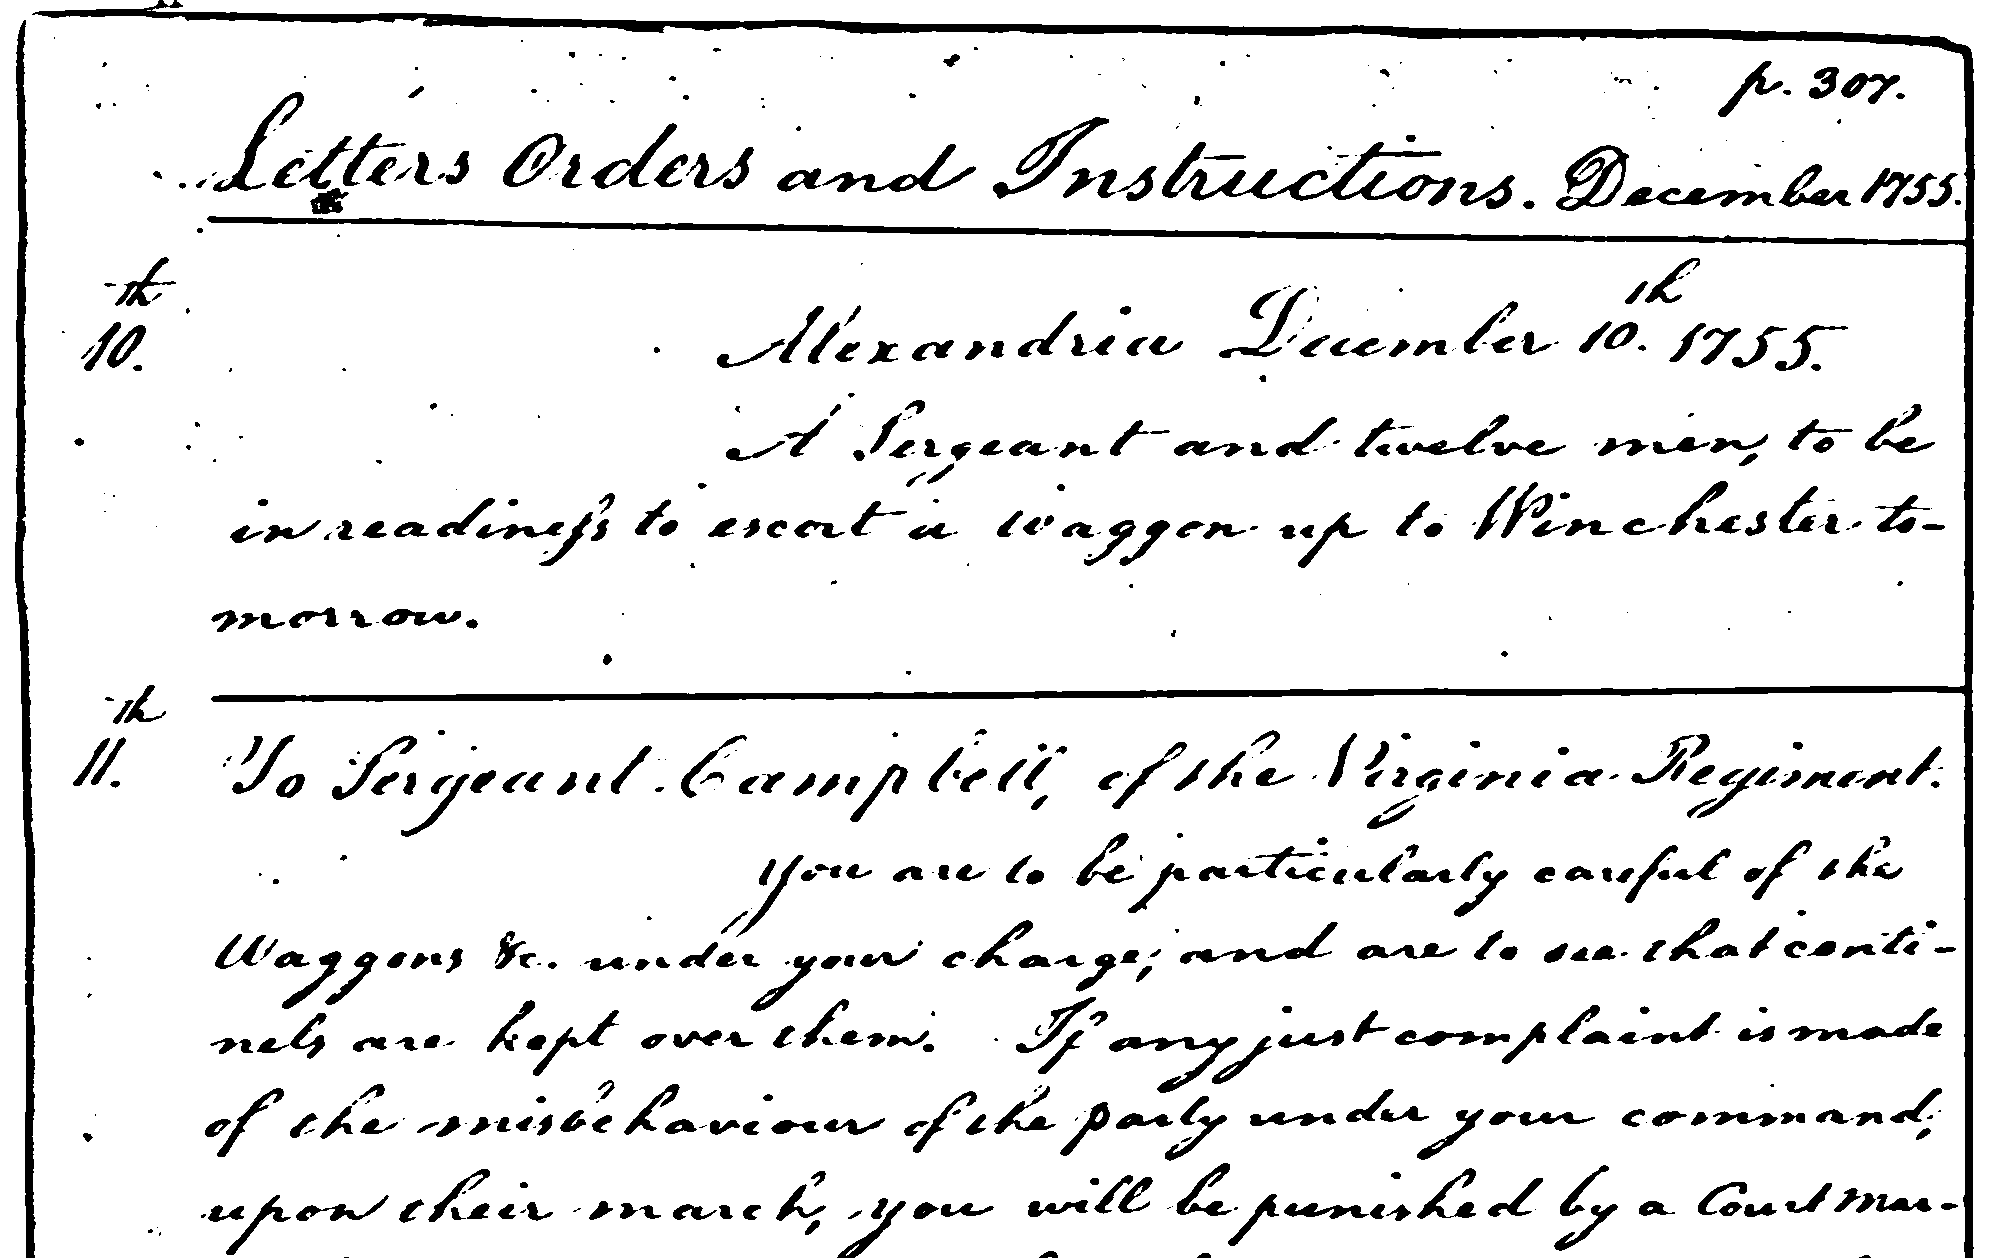 p. 307.
Letters Orders and Instructions. December 1755.
10.th
Alexandria December 10.th 1755.
A Sergeant and twelve men, to be
in readiness to escort a waggon up to Winchester to-
morrow.
11.th
To Sergeant Campbell, of the Virginia Regiment.
You are to be particularly careful of the
Waggons &c. under your charge; and are to see that centi-
nels are kept over them. If any just complaint is made
of the misbehaviour of the party under your command,
upon their march, you will be punished by a Court Mar-